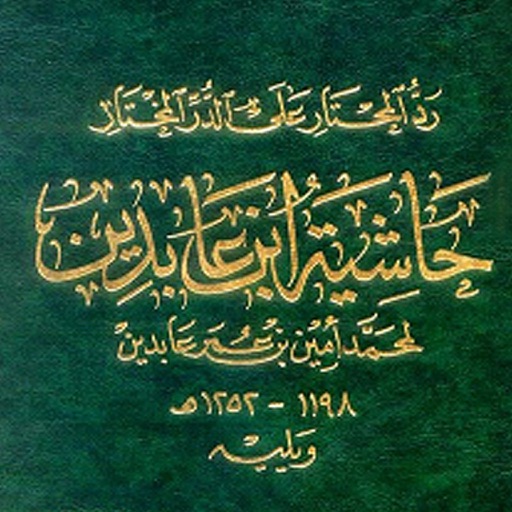 رد المحتار على الدر المختار
حاشية ابن عابدين
لمحمد أمين بن عمر عابدين
١١٩٨ - ١٢٥٢هـ
ويليه